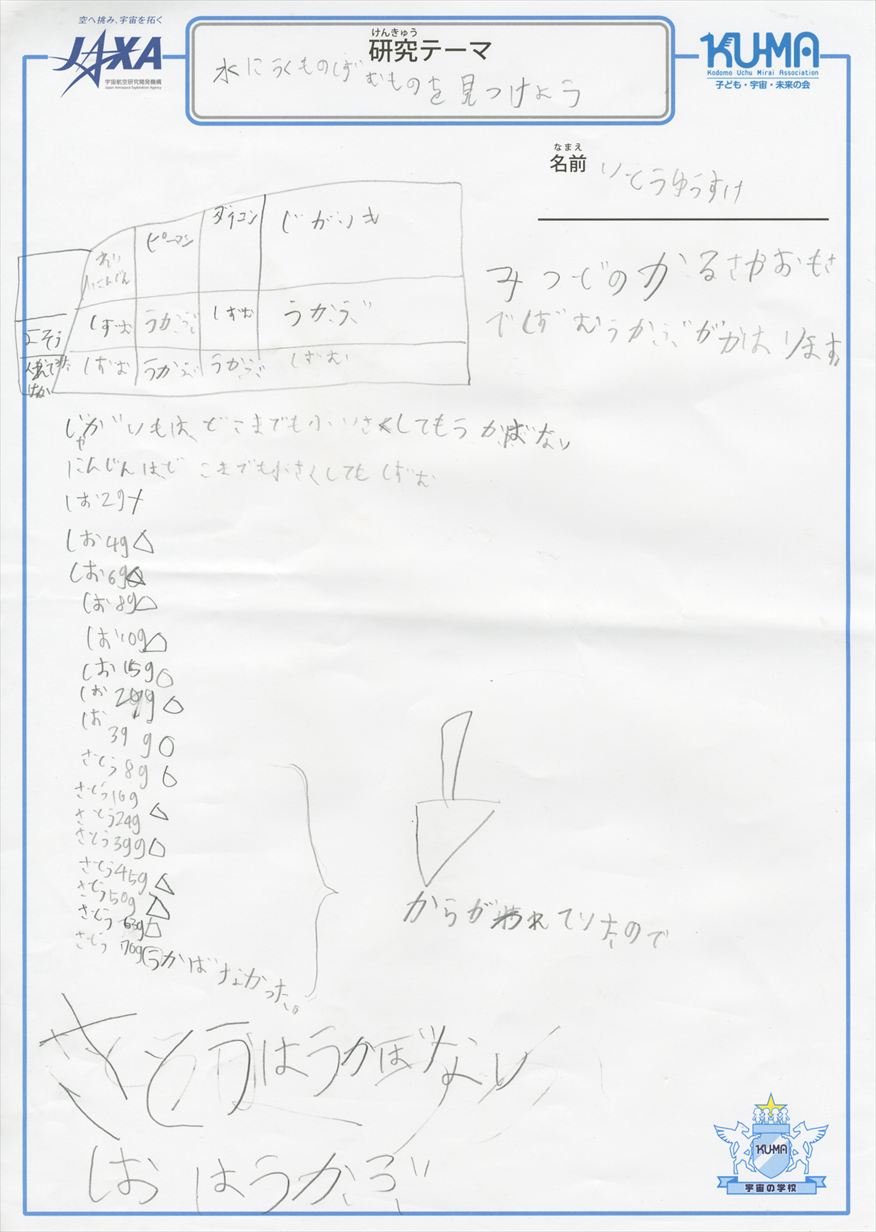 空へ挑み、宇宙を拓く
JAXA
宇宙航空研究開発機構
Japan Aerospace Exploration Agency
けんきゅう
研究テーマ
水にうくものしずむものを見つけよう
KU-MA
Kodomo Uchu Mirai Association
子ども・宇宙・未来の会
なまえ
名前 いとうゆうすけ
にんじん ピーマン ダイコン じがいも
よそう しずむ うかぶ しずむ うかぶ
しずむ うかぶ うかぶ しずむ
みつどのかるさやおもさ
でしずむうかぶがかはります
じゃがいもは、どこまでも小いさくしてもうかばない
にんじんは、どこまでも小さくしてもしずむ
しお2g
しお4g△
しお6g
しお8g△
しお10g△
しお15g○
しお29g○
しお39g○
さとう8g
さとう16g
さとう24g△
さとう39g△
さとう45g△
さとう50g△
さとう63g△
さとう70gうかばなかった。
からが割れていたので
さとうはうかばない
しおはうかぶ
KU-MA
宇宙の学校